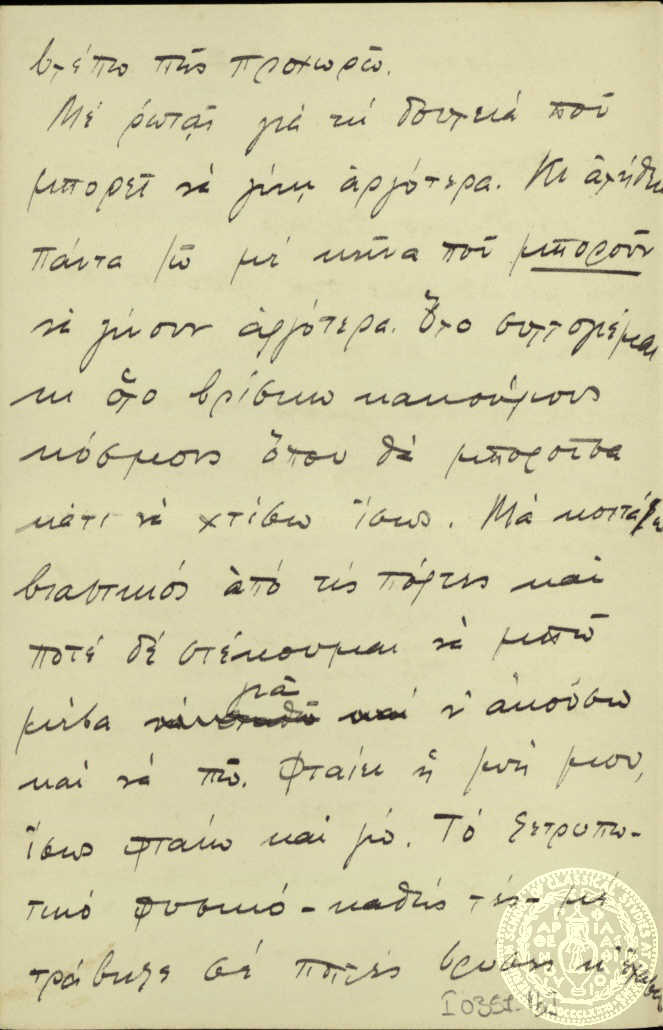 βλέπω πῶς προχωρῶ.
Μὲ ρωτᾷς γιὰ τὴ δουλειὰ ποὺ
μπορεῖ νὰ γίνῃ ἀργότερα. Κι ἀλήθεια
πάντα ζῶ μὲ κεῖνα ποὺ μποροῦν
νὰ γίνουν ἀργότερα. Ὅλο συλλογιέμαι
κι ὅλο βρίσκω καινούριους
κόσμους ὅπου θὰ μποροῦσα
κάτι νὰ χτίσω ἴσως. Μὰ κοιτάζω
βιαστικός ἀπὸ τὶς πόρτες καὶ
ποτὲ δὲ στέκουμαι νὰ μπῶ
μέσα γιὰ ν' ἀκούσω
καὶ νὰ πῶ. Φταίει ἡ ζωή μου,
ἴσως φταίω καὶ γώ. Τὸ
φυσικό - καθὼς λές - μὲ
τράβηξε σὲ πολλὲς βρύσες κι
I0351.